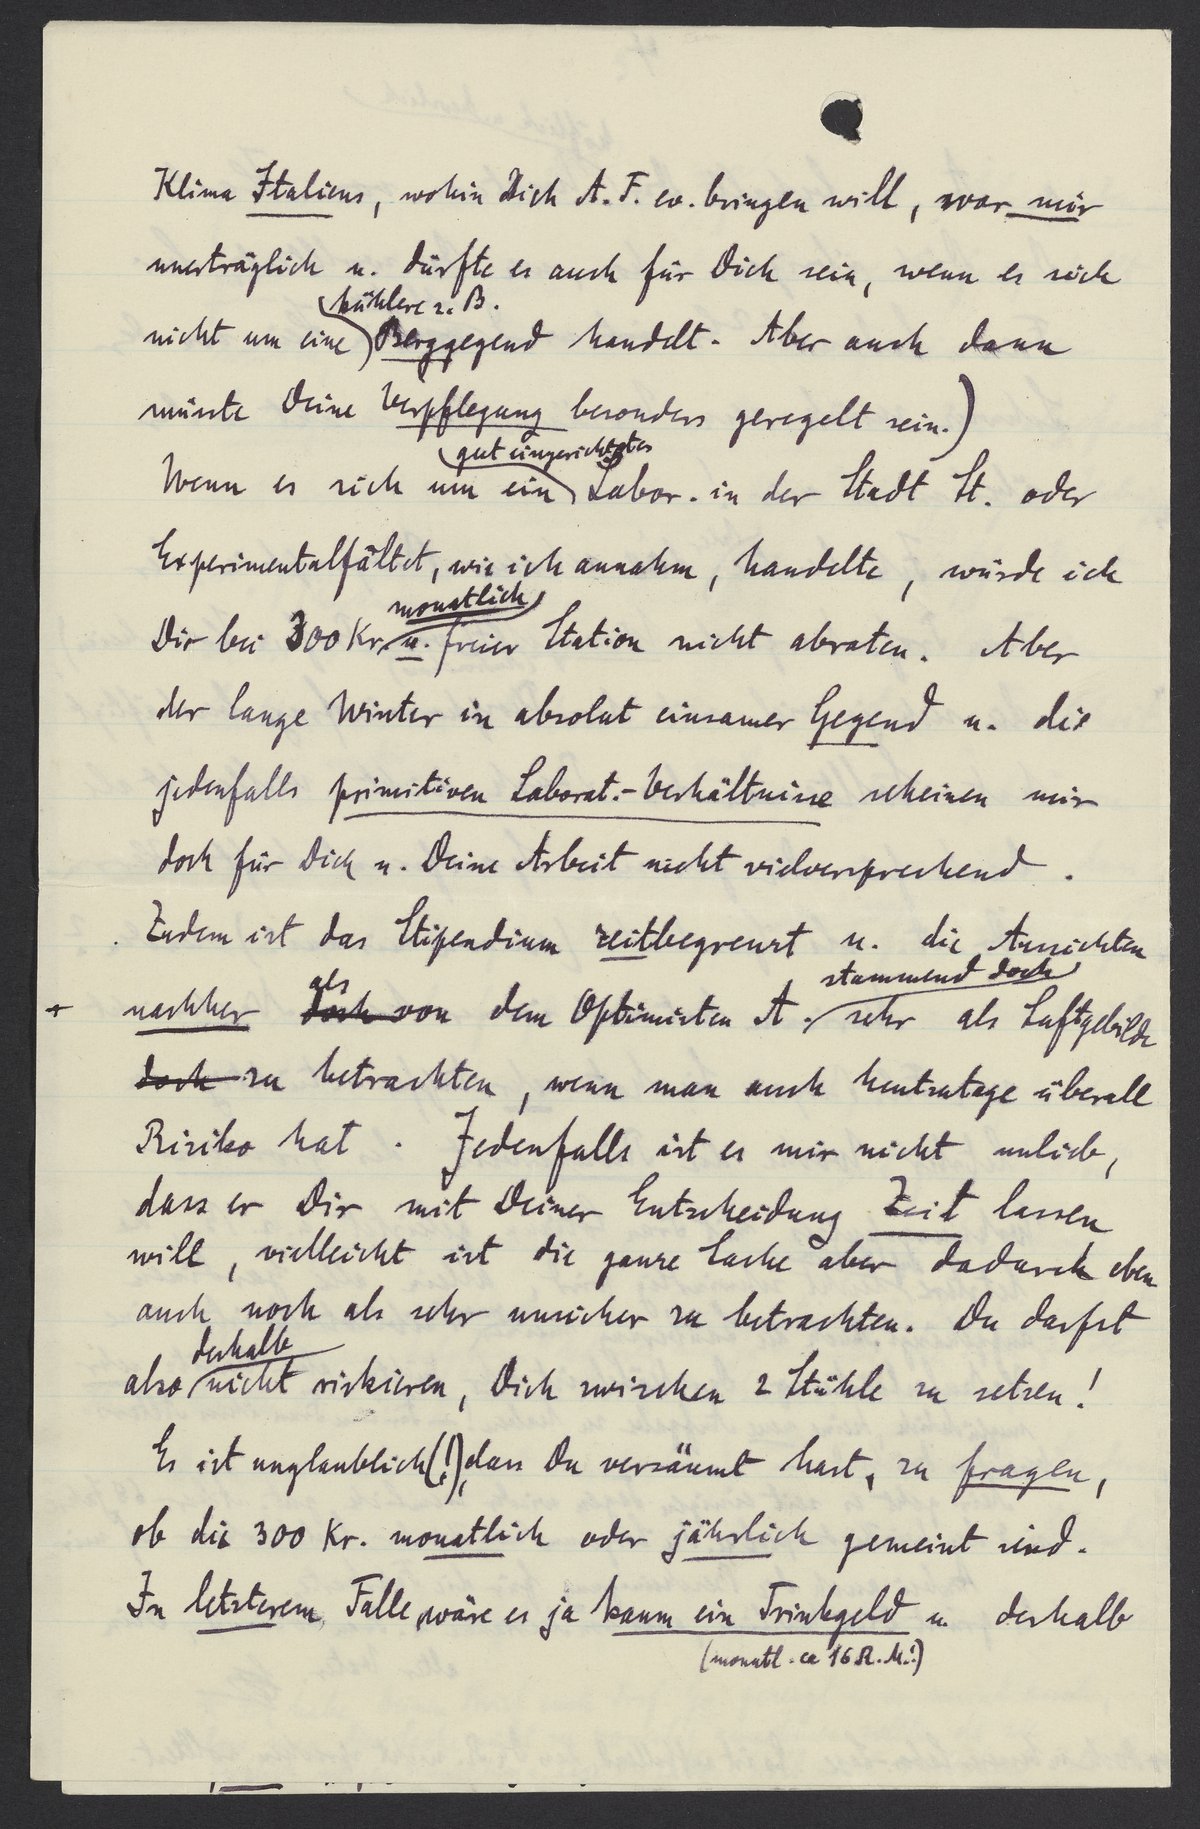 Klima Italiens, wohin Dich A. F. ev. bringen will, war mir
unerträglich u. dürfte es auch für Dich sein, wenn es sich
kühlere z. B.
nicht um eine Berggegend handelt. Aber auch dann
müsste Deine Verpflegung besonders geregelt sein.)
gut eingerichtetes
Wenn es sich um ein Labor. in der Stadt St. oder
Experimentalfältet, wie ich annahm, handelte, würde ich
monatlich
Dir bei 300 Kr. u. freier Station nicht abraten. Aber
der lange Winter in absolut einsamer Gegend u. die
jedenfalls primitiven Laborat.-Verhältnisse scheinen mir
doch für Dich u. Deine Arbeit nicht vielversprechend.
Zudem ist das Stipendium zeitbegrenzt u. die Aussichten
als stammend doch
+ nachher doch von dem Optimisten A. sehr als Luftgebilde
doch zu betrachten, wenn man auch heutzutage überall
Risiko hat. Jedenfalls ist es mir nicht unlieb,
dass er Dir mit Deiner Entscheidung Zeit lassen
will, vielleicht ist die ganze Sache aber dadurch eben
auch noch als sehr unsicher zu betrachten. Du darfst
deshalb
also nicht riskieren, Dich zwischen 2 Stühle zu setzen!
Es ist unglaublich(!), dass Du versäumt hast, zu fragen,
ob die 300 Kr. monatlich oder jährlich gemeint sind.
In letzterem Falle wäre es ja kaum ein Trinkgeld u. deshalb
(monatl. ca 16 R. M.!)